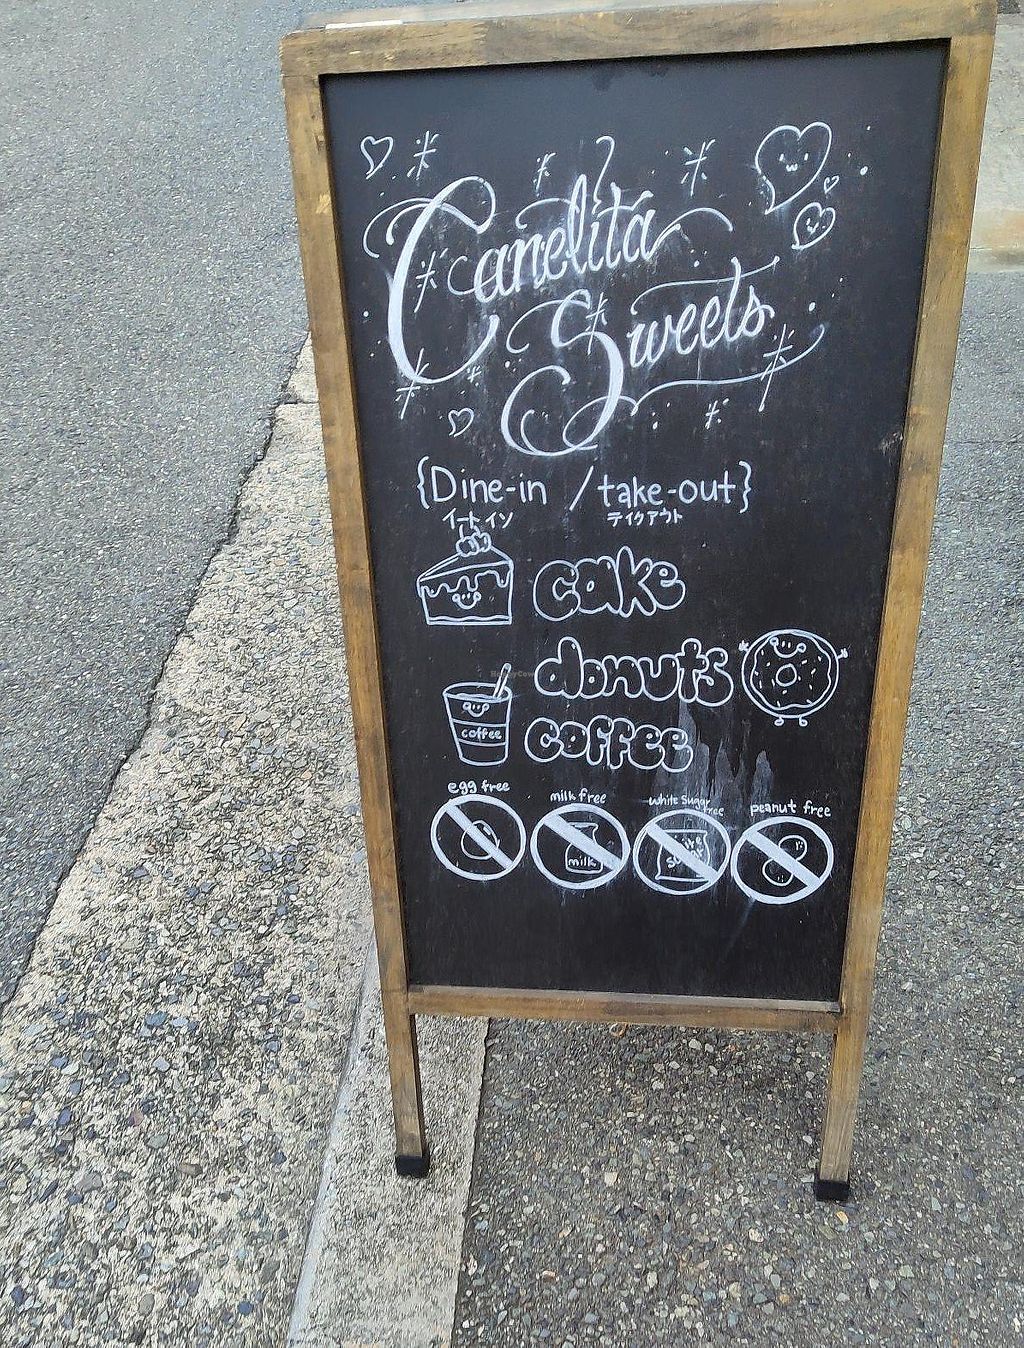 Canelita
Sweets
{Dine-in / take-out}
イートイン テイクアウト
cake
donuts
coffee
coffee
egg free milk free white Sugar free peanut free
milk